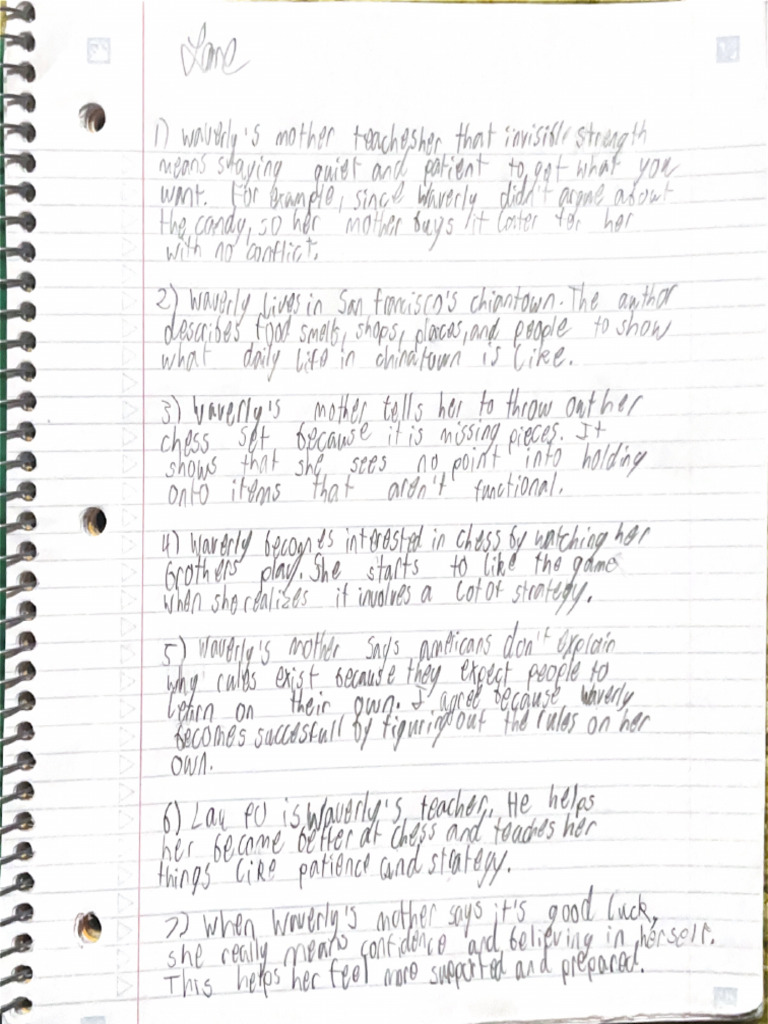 Lane
1) Waverly's mother teachesher that invisible strength
means staying quiet and patient to get what you
want. For example, since Waverly didn't argue about
the candy, so her mother buys it later for her
with no conflict.
2) Waverly lives in San francisco's chiantown. The author
describes food smells, shops, places, and people to show
what daily life in chinatown is like.
3) Waverly's mother tells her to throw out her
chess set because it is missing pieces. It
shows that she sees no point into holding
onto items that aren't functional.
4) Waverly becomes interested in chess by watching her
brothers play. She starts to like the game
when she realizes it involves a lot of strategy.
5) Waverly's mother says americans don't explain
why rules exist because they expect people to
learn on their own. I agree because Waverly
becomes succesfull by figuring out the rules on her
own.
6) Lau PO is Waverly's teacher. He helps
her become better at chess and teaches her
things like patience and strategy.
7) When Waverly's mother says it's good luck,
she really means confidence and believing in herself.
This helps her feel more supported and prepared.